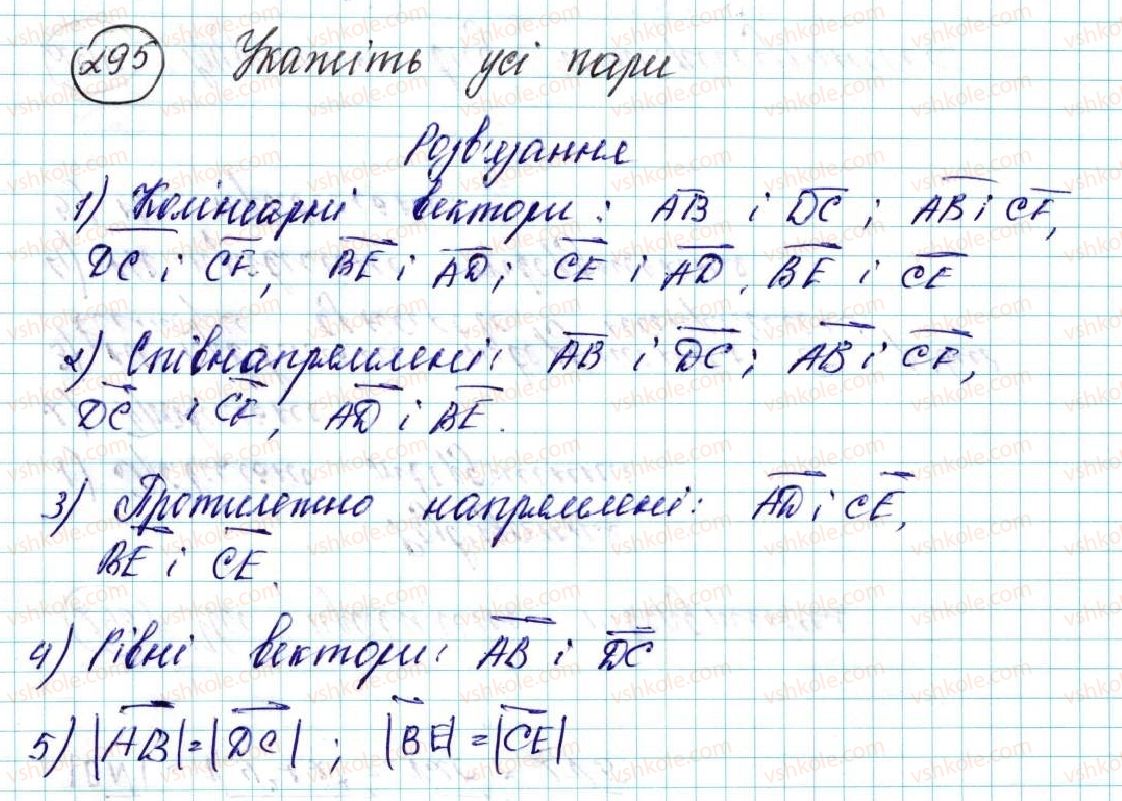 295 Укажіть усі пари
Розв'язання
1) Колінеарні вектори: AB і DC; AB і CF,
DC і CF, BE і AD; CE і AD, BE і CE
2) Співнапрямлені: AB і DC; AB і CF,
DC і CF, AD і BE.
3) Протилежно напрямлені: AD і CE,
BE і CE.
4) Рівні вектори: AB і DC
5) |AB| = |DC|; |BE| = |CE|
vshkole.com